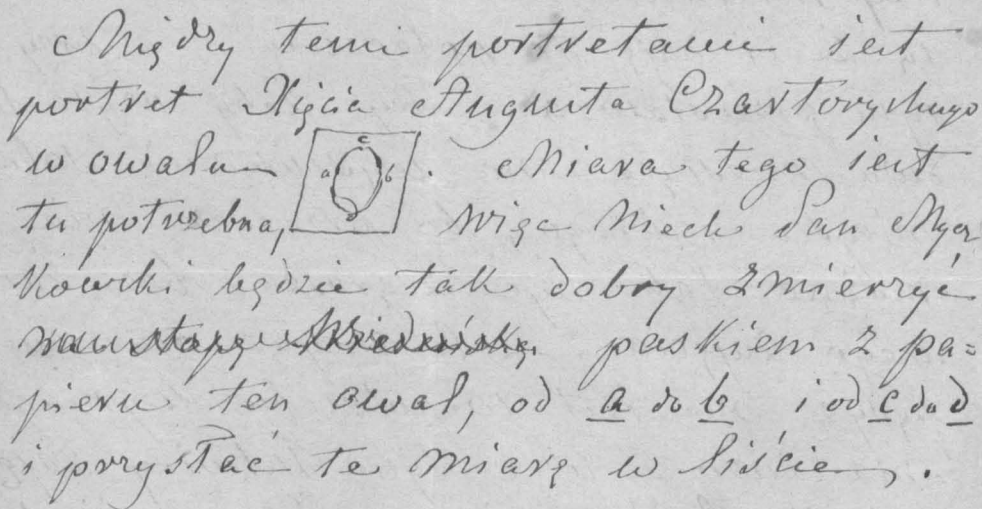 Między temi portretami jest
portret Xięcia Augusta Czartoryskiego
w owalu c a b d. Miara tego jest
tu potrzebna, więc niech Pan Mycz
kowski będzie tak dobry zmierzyć
paskiem z pa=
pieru ten owal, od a do b i od c do d
i przysłać tę miarę w liście.